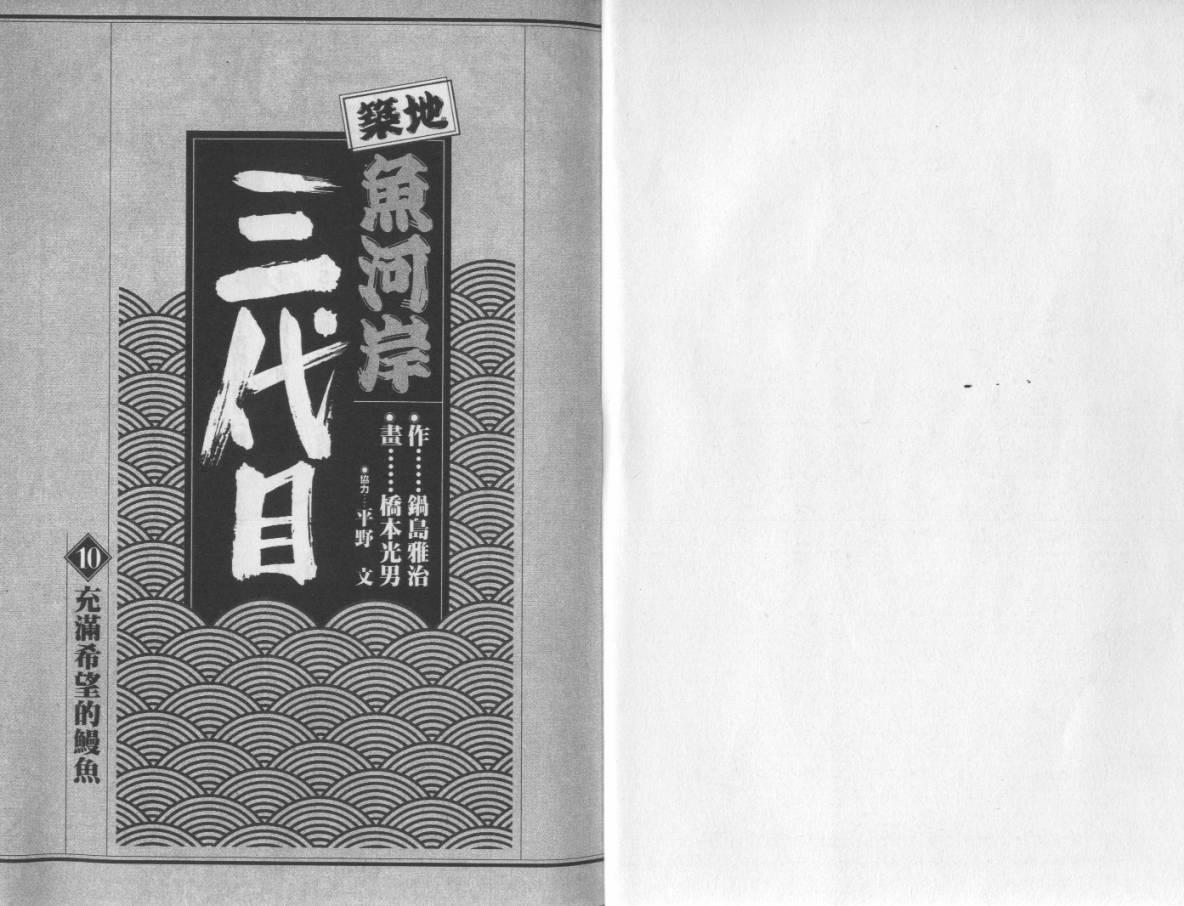 築地
魚河岸
三代目
●作……鍋島雅治
●畫……橋本光男
●協力…平野 文
10 充滿希望的鰻魚